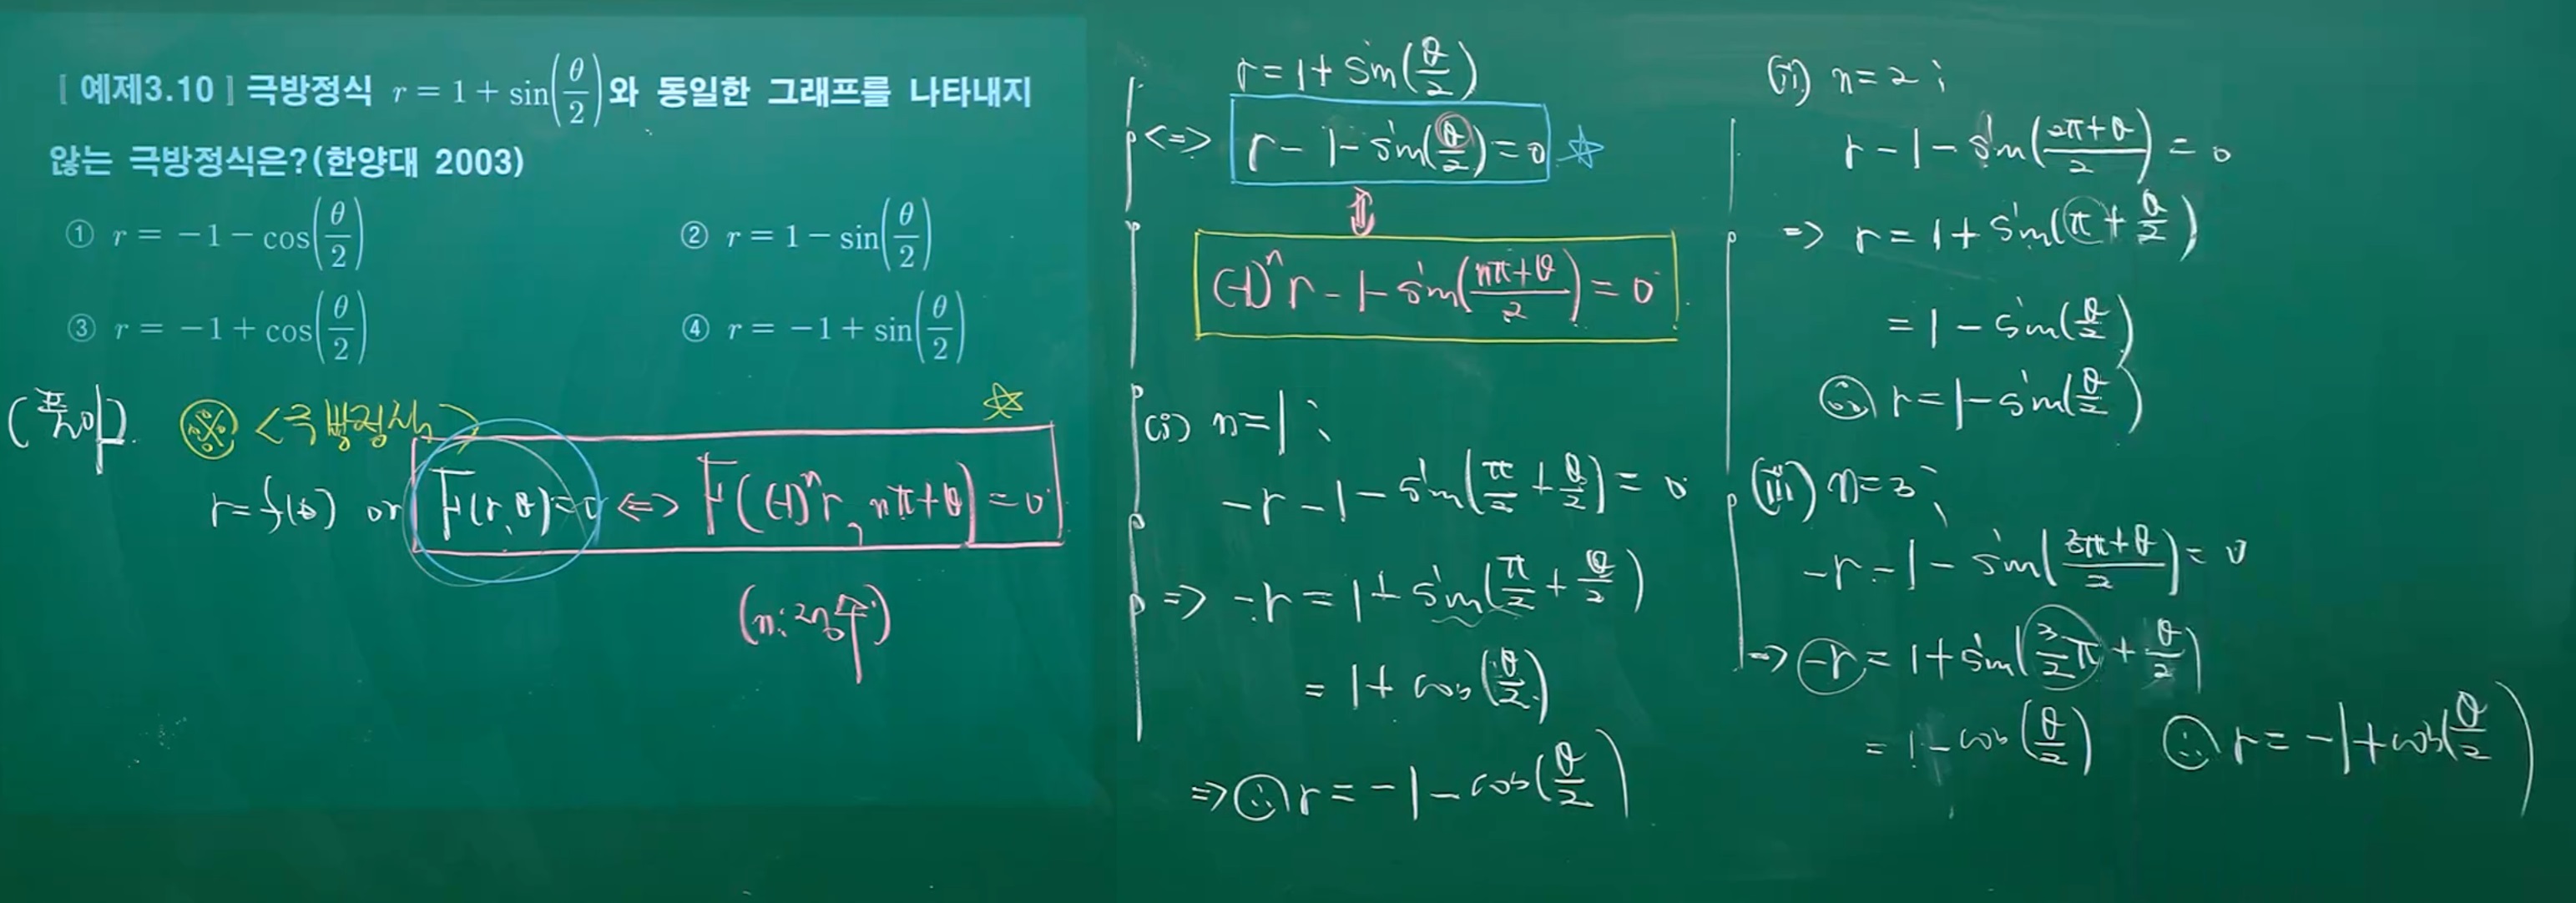 [ 예제3.10 ] 극방정식 r = 1 + sin(θ/2)와 동일한 그래프를 나타내지
않는 극방정식은?(한양대 2003)
① r = −1 − cos(θ/2) ② r = 1 − sin(θ/2)
③ r = −1 + cos(θ/2) ④ r = −1 + sin(θ/2)
(풀이) ※ <극방정식>
r = f(θ) or F(r, θ) = 0 <=> F((-1)ⁿr, nπ+θ) = 0
(n: 정수)
r = 1 + sin(θ/2)
<=> r − 1 − sin(θ/2) = 0 ☆
⇕
(-1)ⁿr − 1 − sin((nπ+θ)/2) = 0
(i) n = 1 ;
−r − 1 − sin(π/2 + θ/2) = 0
=> −r = 1 + sin(π/2 + θ/2)
= 1 + cos(θ/2)
=> ∴ r = −1 − cos(θ/2)
(ii) n = 2 ;
r − 1 − sin((2π+θ)/2) = 0
=> r = 1 + sin(π + θ/2)
= 1 − sin(θ/2)
∴ r = 1 − sin(θ/2)
(iii) n = 3 ;
−r − 1 − sin((3π+θ)/2) = 0
=> −r = 1 + sin(3/2 π + θ/2)
= 1 − cos(θ/2) ∴ r = −1 + cos(θ/2)